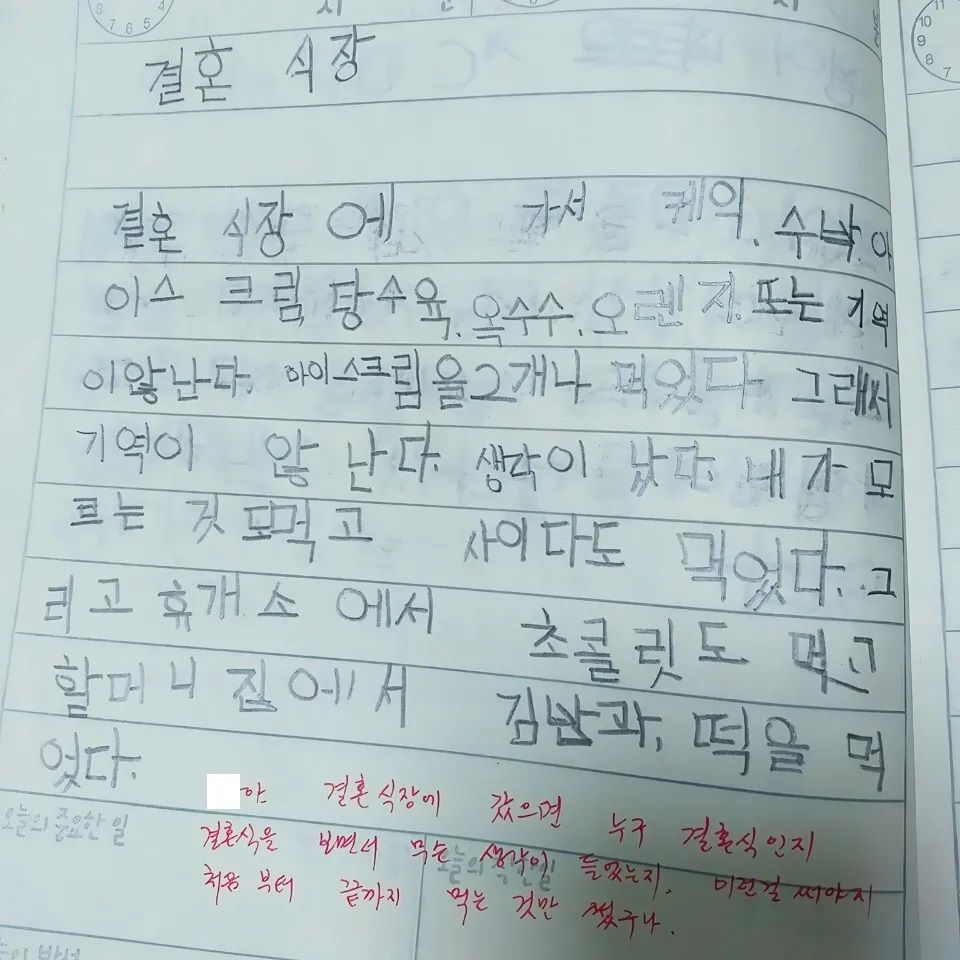 결혼 식장
결혼 식장 에 가서 케익, 수박, 아
이스 크림, 탕수육, 옥수수, 오렌지, 또는 기역
이않난다. 아이스크림을2개나 먹었다. 그래서
기역이 않 난다. 생각이 났다. 내가 모
르는 것 모먹고 사이다도 먹었다. 그
리고 휴개소 에서 초콜릿도 먹고
할머니 집에서 김밥과, 떡을 먹
었다.
야 결혼식장에 갔으면 누구 결혼식인지
결혼식을 보면서 무슨 생각이 들었는지. 이런걸 써야지
처음부터 끝까지 먹는 것만 썼구나.
오늘의 중요한 일